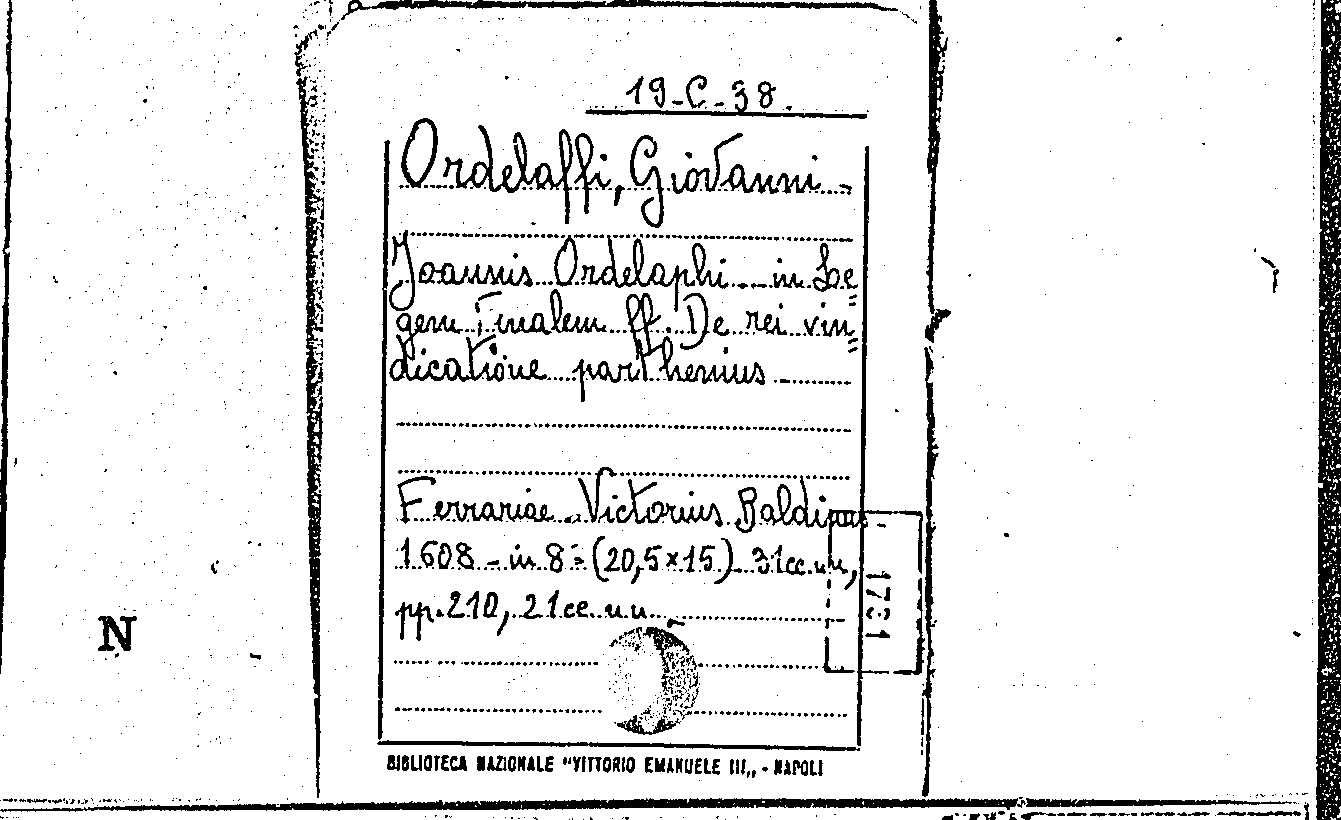 19-C-38.
Ordelaffi, Giovanni -
Joannis Ordelaphi - in Le=
gem Finalem ff. De rei vin=
dicatione parthenius -
Ferrariae Victorius Baldinus -
1608 - in 8° (20,5×15) 31cc.nn,
pp.210, 21cc.nn.
1731
N
BIBLIOTECA NAZIONALE "VITTORIO EMANUELE III„ - NAPOLI